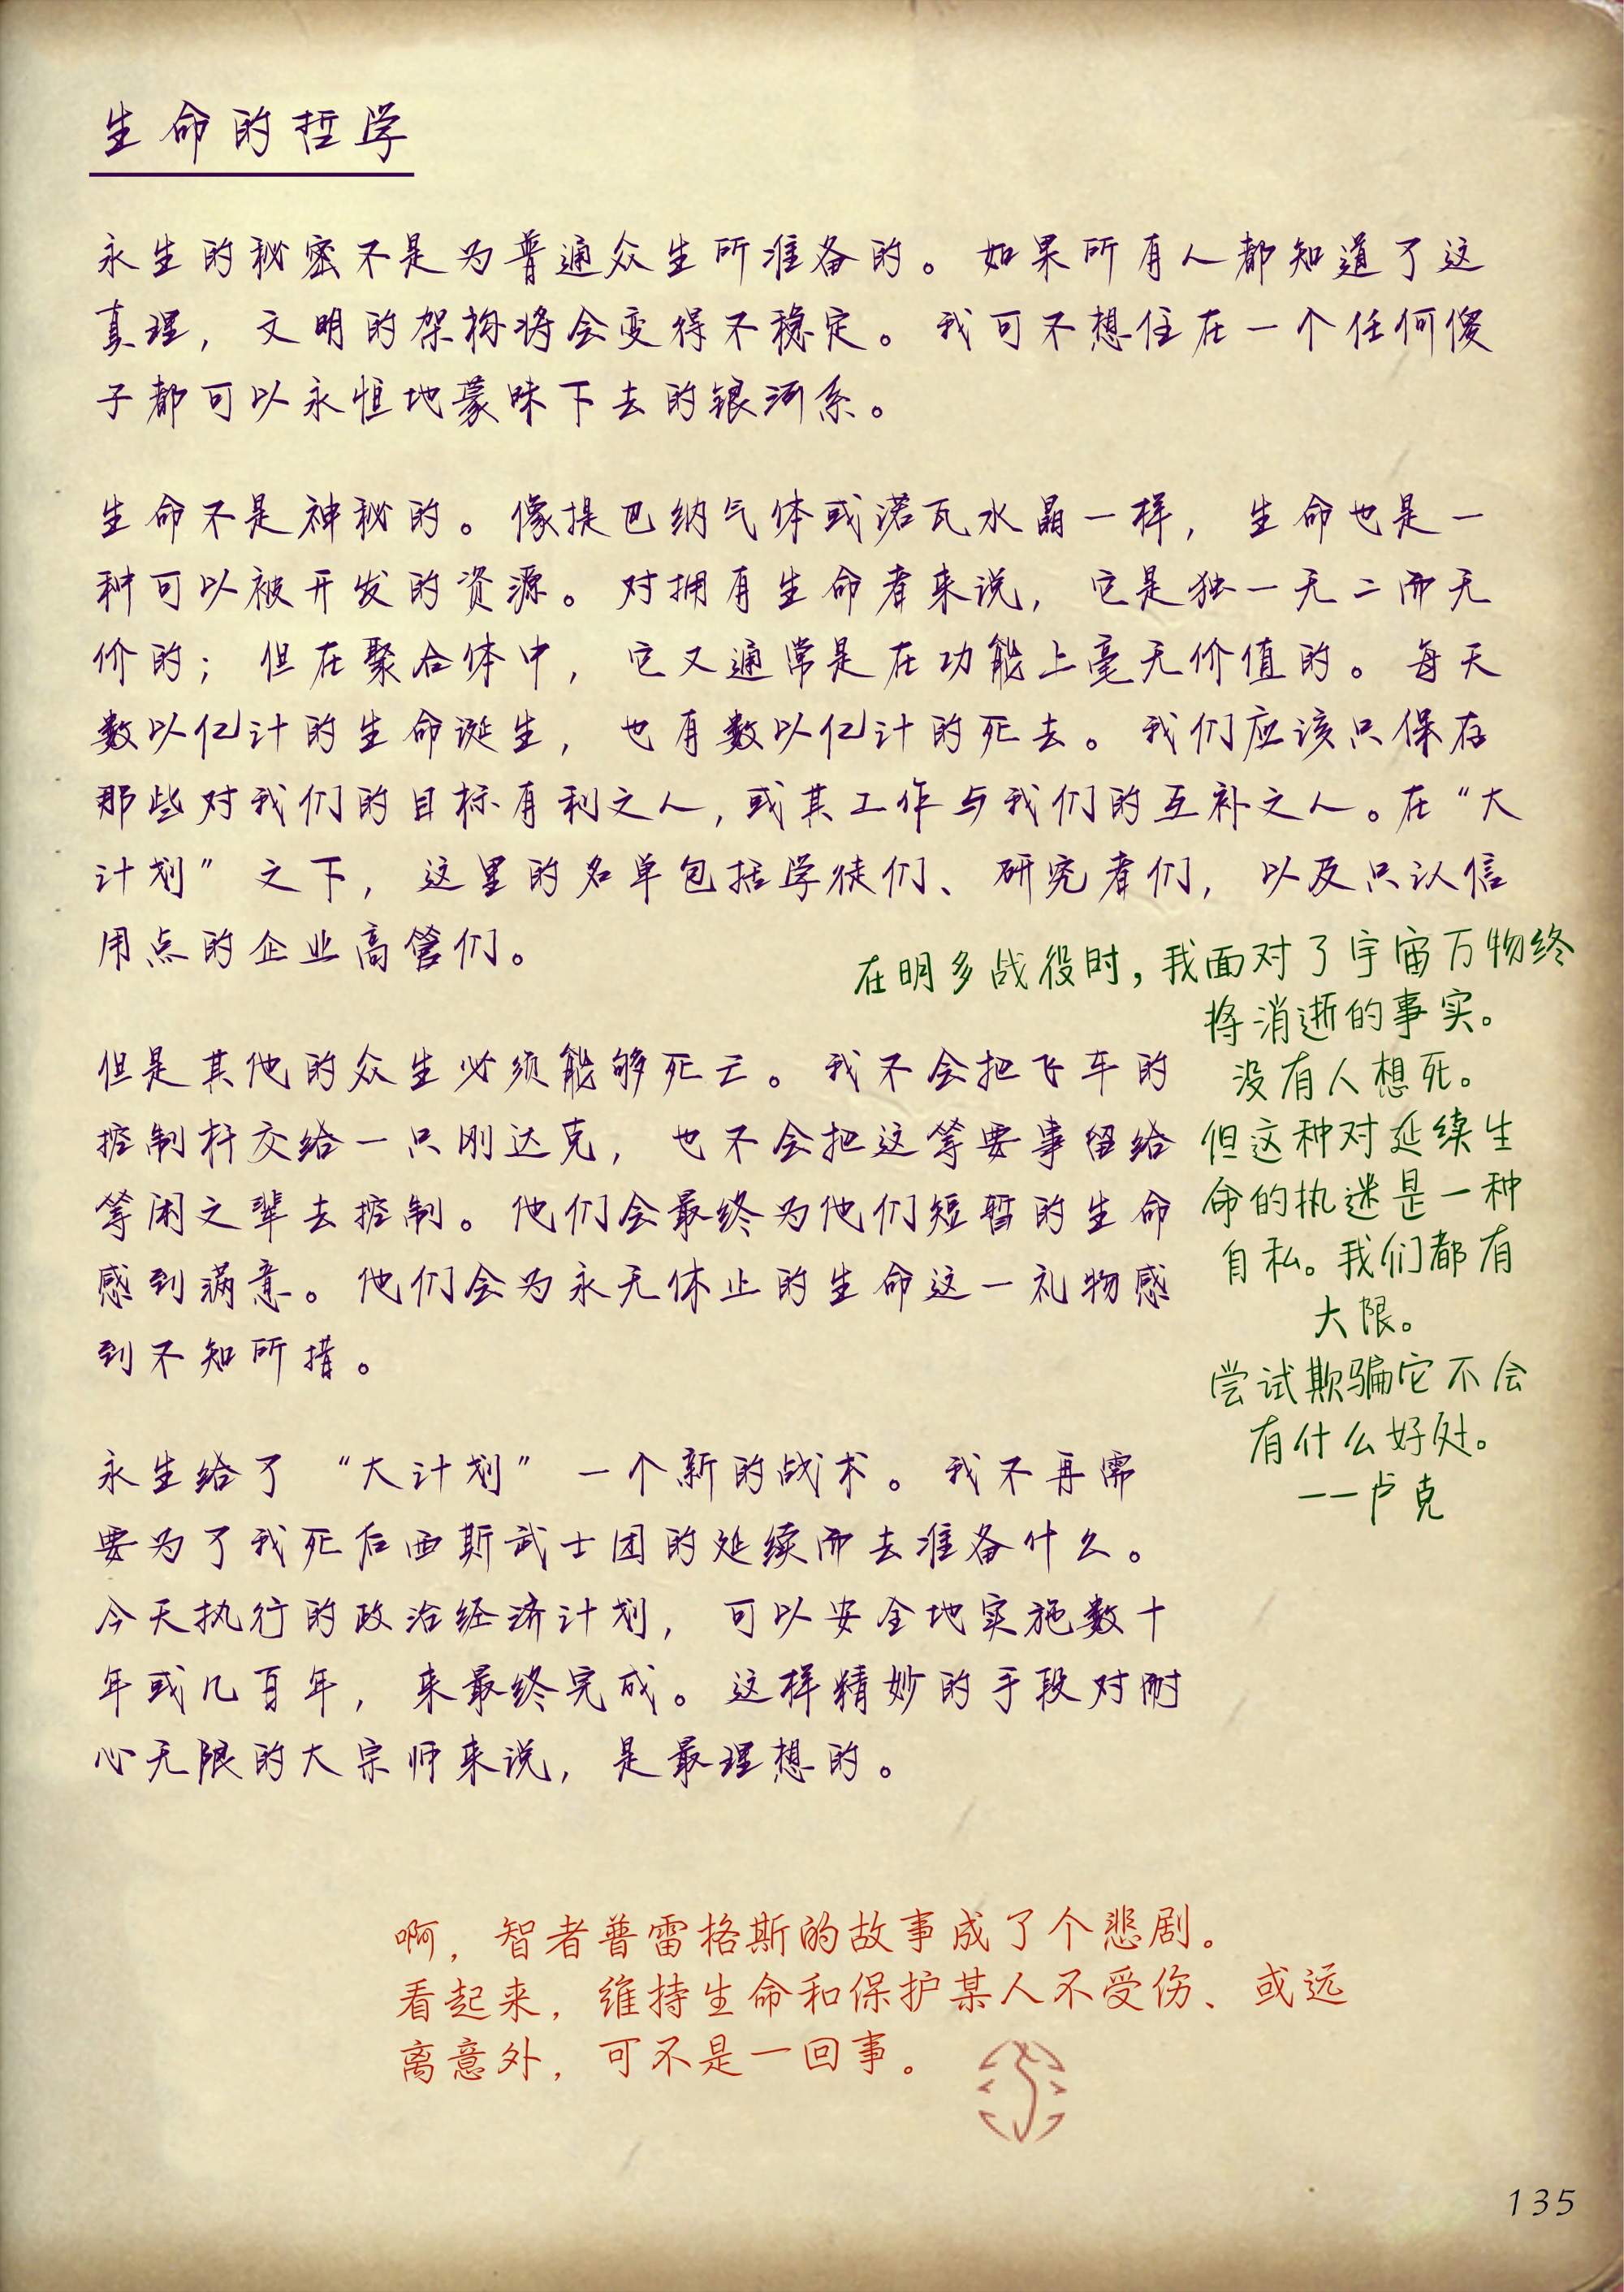 生命的哲学
永生的秘密不是为普通众生所准备的。如果所有人都知道了这
真理，文明的架构将会变得不稳定。我可不想住在一个任何傻
子都可以永恒地蒙昧下去的银河系。
生命不是神秘的。像提巴纳气体或诺瓦水晶一样，生命也是一
种可以被开发的资源。对拥有生命者来说，它是独一无二而无
价的；但在聚合体中，它又通常是在功能上毫无价值的。每天
数以亿计的生命诞生，也有数以亿计的死去。我们应该只保存
那些对我们的目标有利之人,或其工作与我们的互补之人。在“大
计划”之下，这里的名单包括学徒们、研究者们，以及只认信
用点的企业高管们。
但是其他的众生必须能够死亡。我不会把飞车的
控制杆交给一只刚达克，也不会把这等要事留给
等闲之辈去控制。他们会最终为他们短暂的生命
感到满意。他们会为永无休止的生命这一礼物感
到不知所措。
永生给了“大计划”一个新的战术。我不再需
要为了我死后西斯武士团的延续而去准备什么。
今天执行的政治经济计划，可以安全地实施数十
年或几百年，来最终完成。这样精妙的手段对耐
心无限的大宗师来说，是最理想的。
在明多战役时,我面对了宇宙万物终
将消逝的事实。
没有人想死。
但这种对延续生
命的执迷是一种
自私。我们都有
大限。
尝试欺骗它不会
有什么好处。
——卢克
啊，智者普雷格斯的故事成了个悲剧。
看起来，维持生命和保护某人不受伤、或远
离意外，可不是一回事。
135